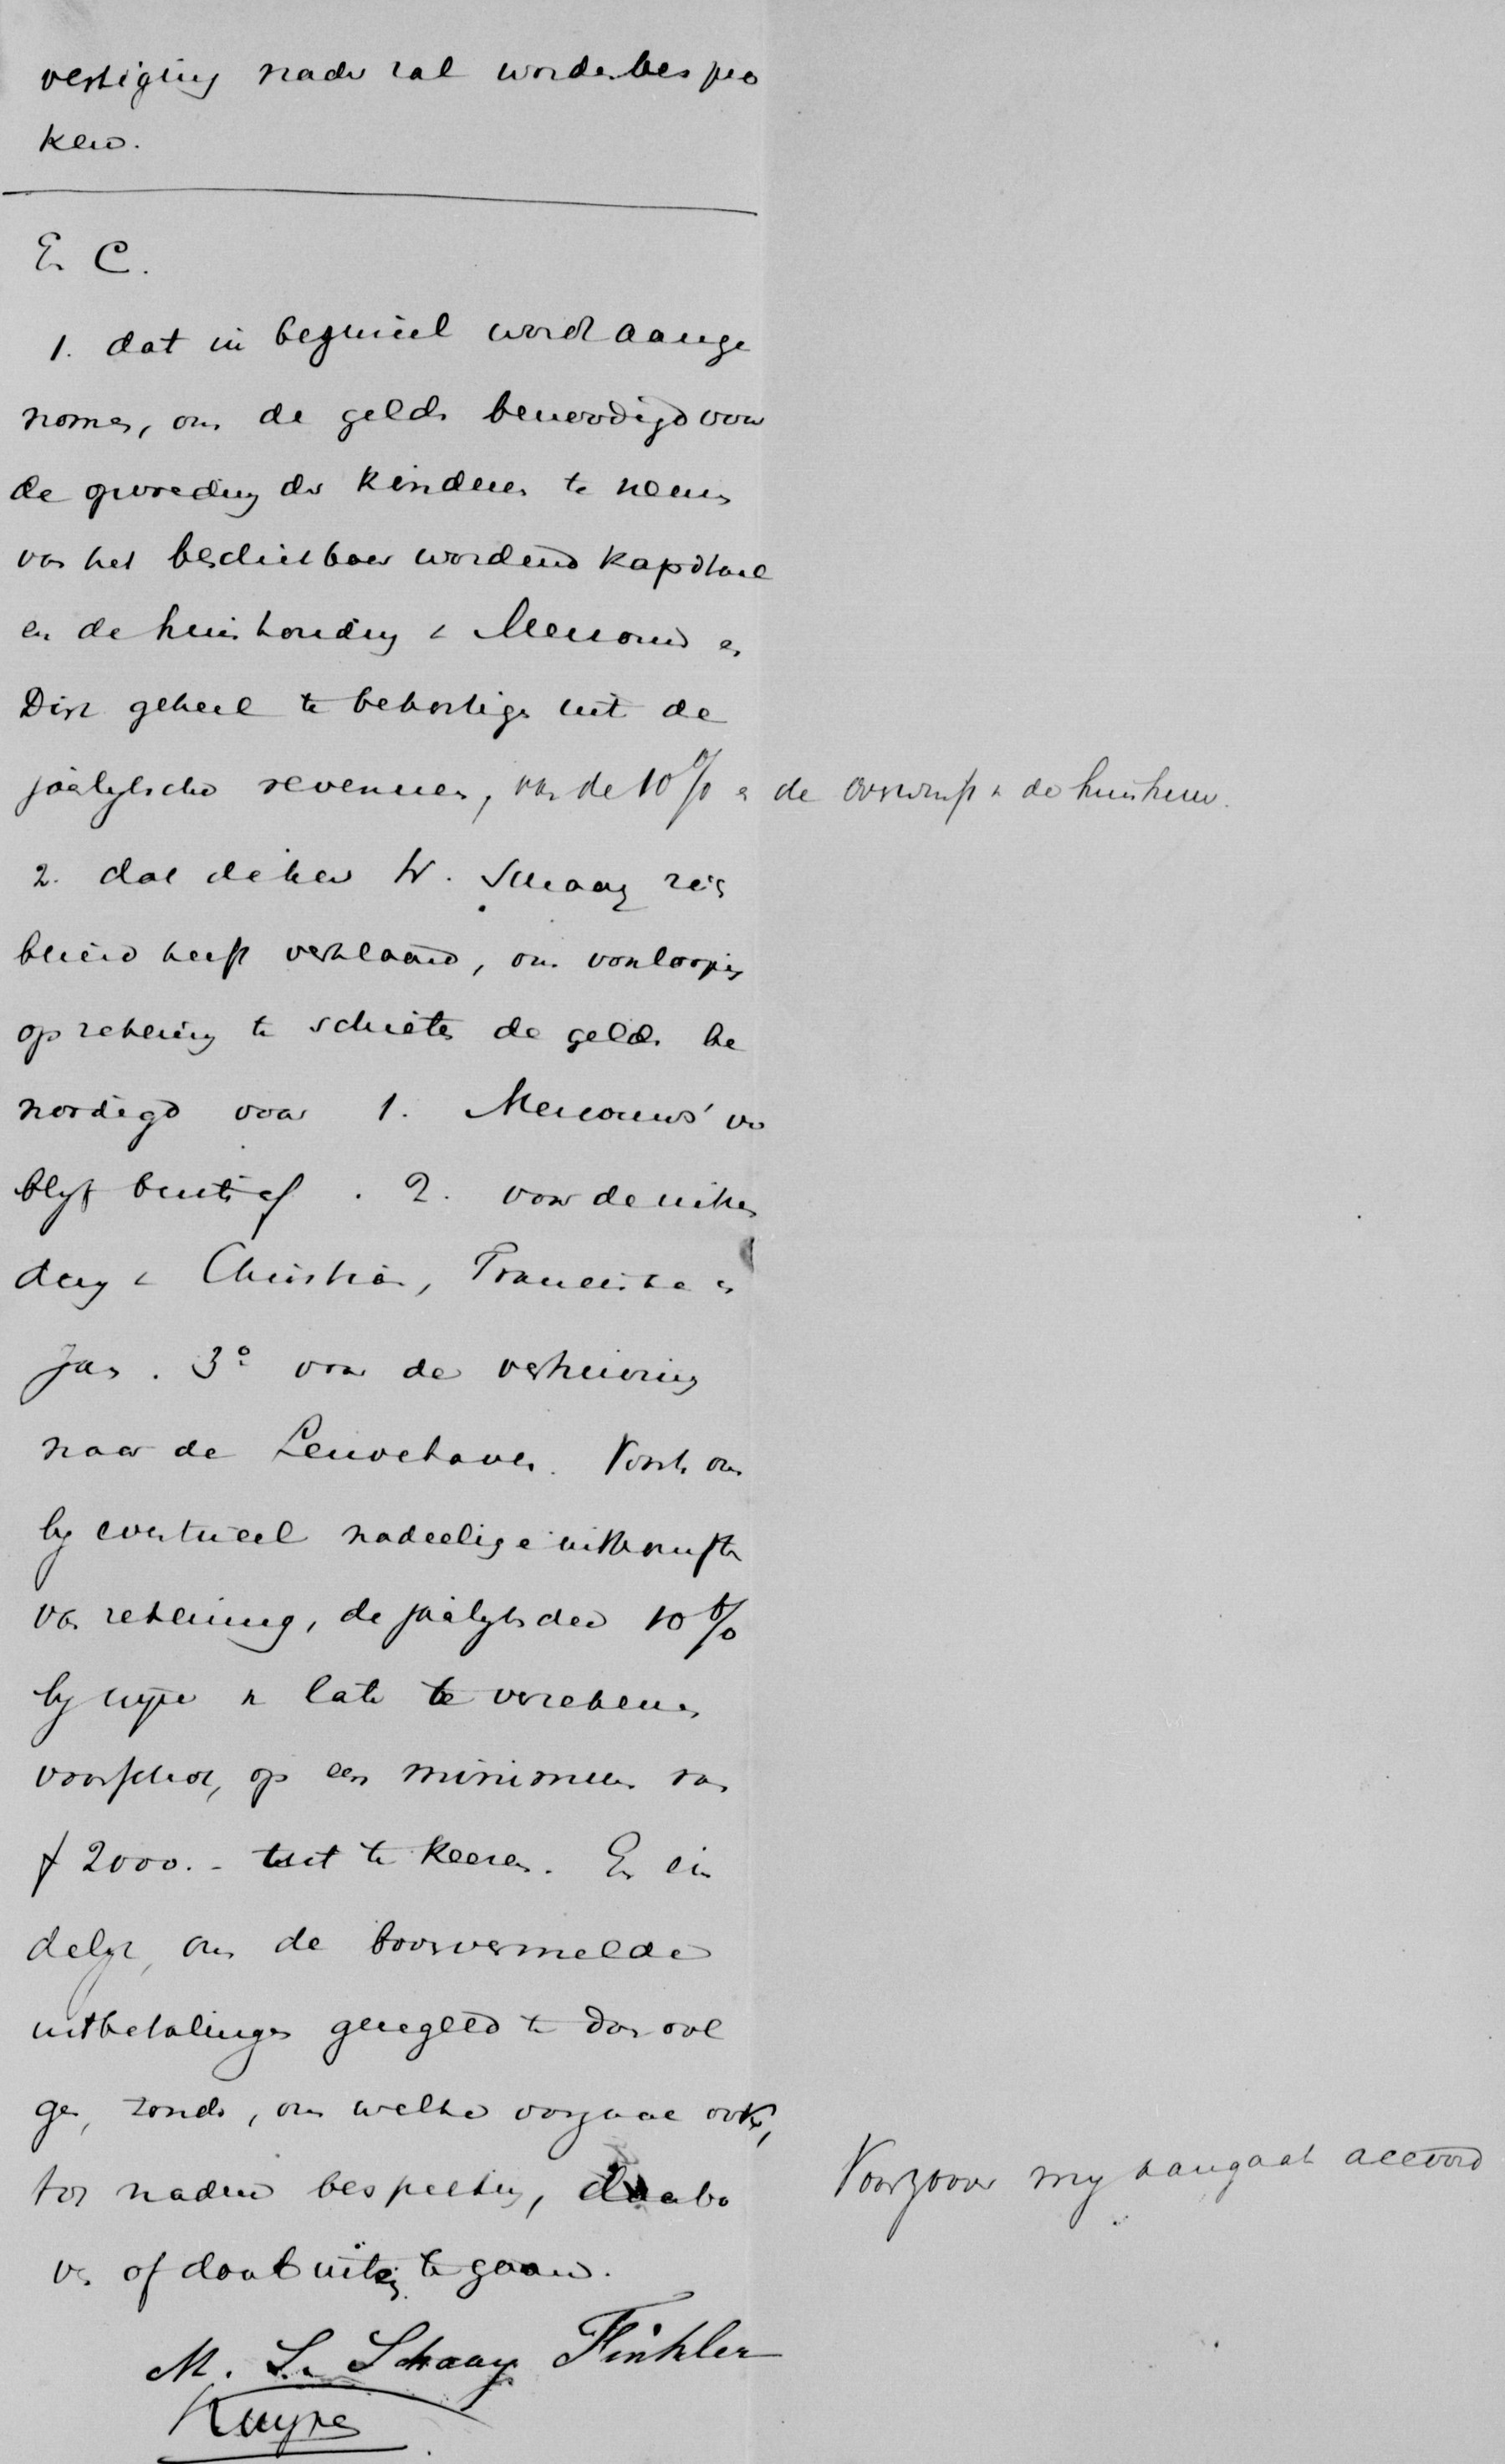 vestiging nader zal worden bespro
ken.
En C.
1. dat in beginsel wordt aange
nomen, om de gelden benoodigd voor
de opvoeding der kinderen te nemen
van het beschikbaar wordend kapitaal
en de huishouding v Mevrouw en
Dirk geheel te bekostigen uit de
jaarlijksche revenuen, van de 10% en de overwinst v de huishuur.
2. dat de heer W. Schaay zich
bereid heeft verklaard, om voorloopig
op rekening te schieten de gelden be
noodigd voor 1. Mevrouws' ver
blijf buiten af. 2. voor de uitzen
ding v Christiaan, Francisca en
Jan. 3º voor de verhuizing
naar de Leuvehaven. Voorts om
bij eventueel nadeelige uitkomsten
van rekening, de jaarlijksche 10%
bij wijze v later te verrekenen
voorschot, op een minimum van
f 2000.- uit te keeren. En ein
delijk, om de bovenvermelde
uitbetalingen geregeld te doen vol
gen, zonder, om welke oorzaak ook,
tot nadere bespreking, daarbo
ven of daarbuiten te gaan.
Voorzoover mij aangaat accoord
M. S. Schaay Finkler
Kuyper